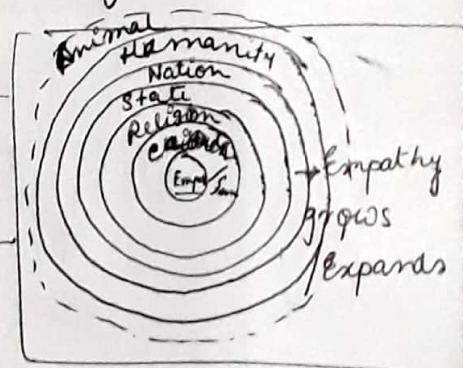 Animal
Humanity
Nation
State
Religion
Emp
→ Empathy
grows
Expands